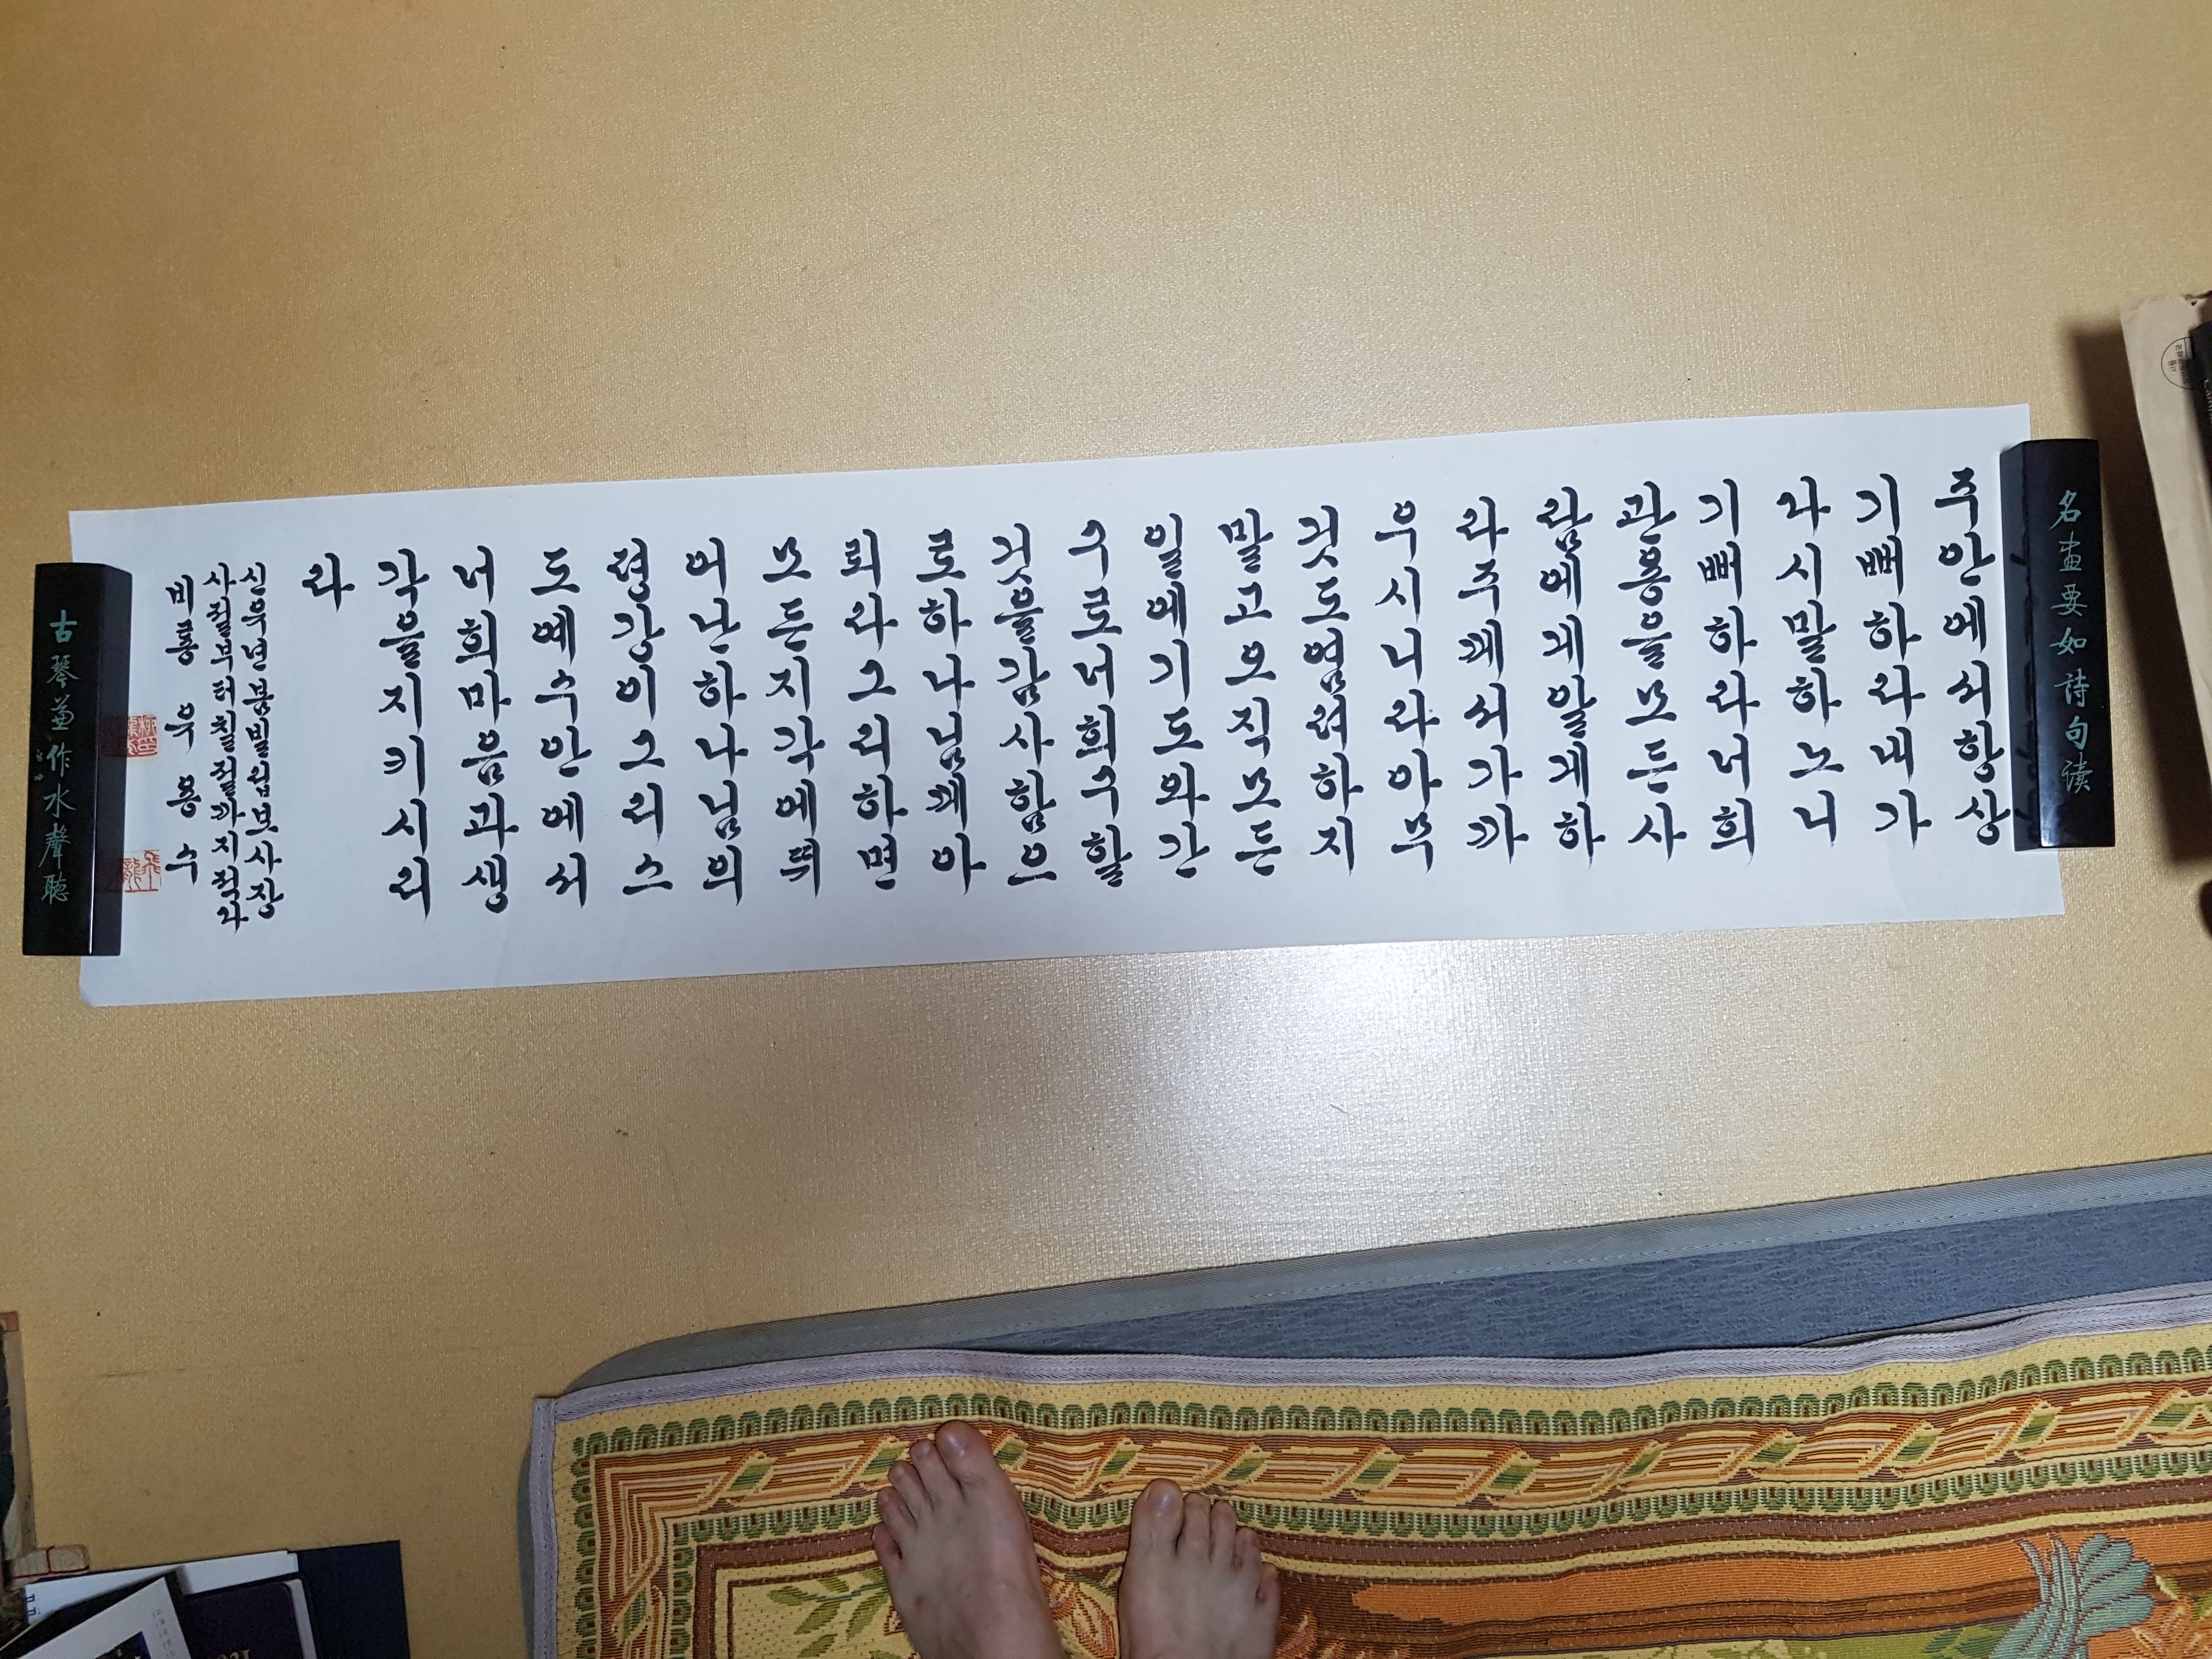 名畫要如詩句读
주안에서항상
기뻐하라내가
다시말하노니
기뻐하라너희
관용을모든사
람에게알게하
라주께서가까
우시니라아무
것도염려하지
말고오직모든
일에기도와간
구로너희구할
것을감사함으
로하나님께아
뢰라그리하면
모든지각에뛰
어난하나님의
평강이그리스
도예수안에서
너희마음과생
각을지키시리
라
신유년봄빌립보사장
사절부터칠절까지적다
비룡 우용수
古琴兼作水聲聽